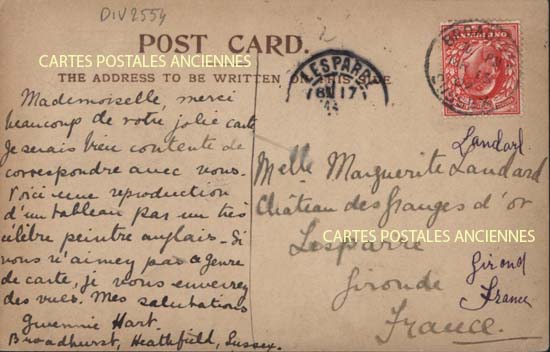 DIV2554
POST CARD.
CARTES POSTALES ANCIENNES
THE ADDRESS TO BE WRITTEN THIS SIDE
LESPARRE
17
ONE PENNY
Mademoiselle, merci
beaucoup de votre jolie carte
Je serais bien contente de
correspondre avec vous.
Voici une reproduction
d'un tableau par un très
célèbre peintre anglais - Si
vous n'aimez pas ce genre
de carte, je vous enverrez
des vues. Mes salutations
Gwennie Hart.
Broadhurst, Heathfield, Sussex.
Landard.
Melle Marguerite Landard
Château des granges d'or
CARTES POSTALES ANCIENNES
Lesparre
Gironde
France.
Girond
France